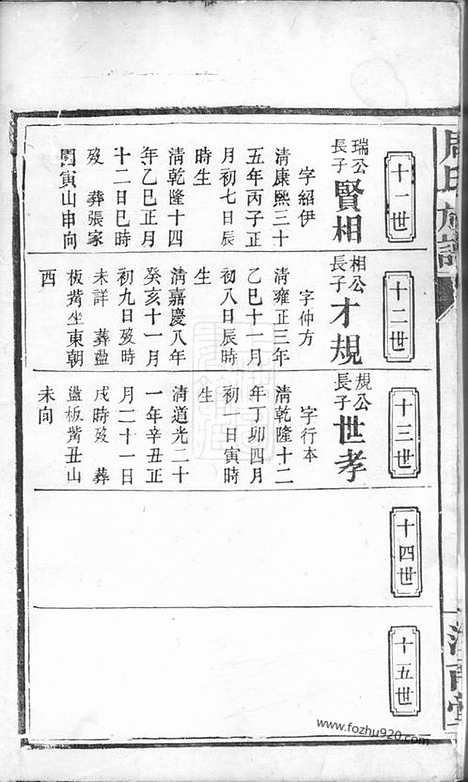 十一世
瑞公
長子
賢相
字紹伊
清康熙三十
五年丙子正
月初七日辰
時生
清乾隆十四
年乙巳正月
十二日巳時
歿　葬張家
寅山申向
十二世
相公
長子
才規
字仲方
清雍正三年
乙巳十一月
初八日辰時
生
清嘉慶八年
癸亥十一月
初九日歿時
未詳　葬
板觜坐東朝
西
十三世
規公
長子
世孝
字行本
清乾隆十二
年丁卯四月
初一日寅時
生
清道光二十
一年辛丑正
月二十一日
戌時歿　葬
板觜丑山
未向
十四世
十五世
周氏族譜
www.fozhu920.com